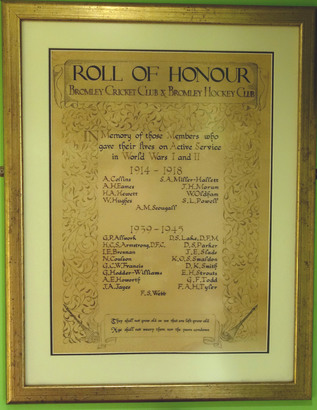 ROLL OF HONOUR
BROMLEY CRICKET CLUB & BROMLEY HOCKEY CLUB
IN Memory of those Members who
gave their lives on Active Service
in World Wars I and II
1914 - 1918
A. Collins S.A. Miller-Hallett
A.H. Eames J.H. Moran
H.A. Hewett W. Oldham
W. Hughes S.L. Powell
A.M. Scougall
1939-1945
G.P. Allwork D.S. Lake, D.F.M.
H.C.S. Armstrong, D.F.C. D.S. Parker
I.E. Brennan J.E. Slade
N. Coulson K.O.S. Smalden
G.C.W. Francis D.K. Smith
G. Hodder-Williams E.H. Strouts
A.E. Howorth G.F. Todd
J.A. Jayes F.A.H. Tyler
F.S. Webb
They shall not grow old as we that are left grow old
Age shall not weary them nor the years condemn